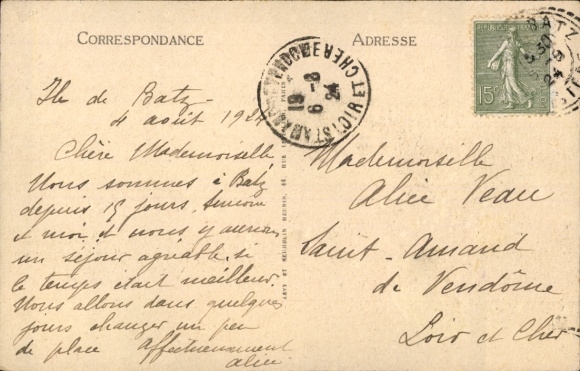 CORRESPONDANCE
ADRESSE
Ile de Batz -
4 août 192
Chère Mademoiselle
Nous sommes à Batz
depuis 15 jours, Simone
et moi et nous y aurions
un séjour agréable si
le temps était meilleur.
Nous allons dans quelques
jours changer un peu
de place Affectueusement
Alice
Mademoiselle
Alice Veau
Saint-Amand
de Vendôme
Loir et Cher
BATZ
15c
19
6 - 8
24
LOIR-ET-CHER